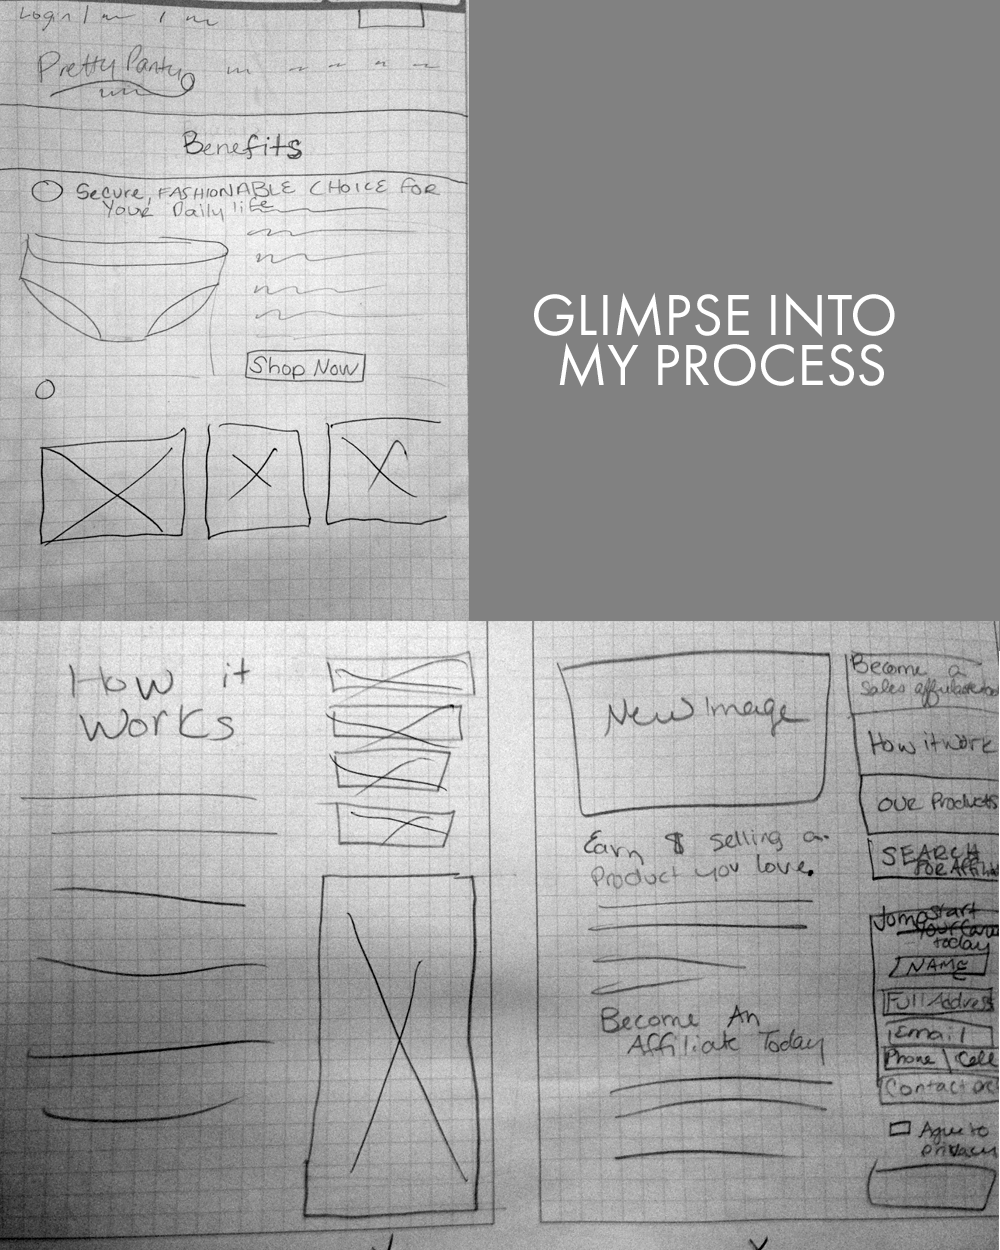 Login | |
Pretty Panty
Benefits
Secure, FASHIONABLE CHOICE FOR
Your Daily life
Shop Now
GLIMPSE INTO
MY PROCESS
How it
Works
New Image
Earn $ selling a
Product you love.
Become An
Affiliate Today
Become a
sales
How it work
OUR Products
SEARCH
FOR
Jumpstart
Your
today
NAME
Full Address
Email
Phone | Cell
Contact
Agree to
privacy